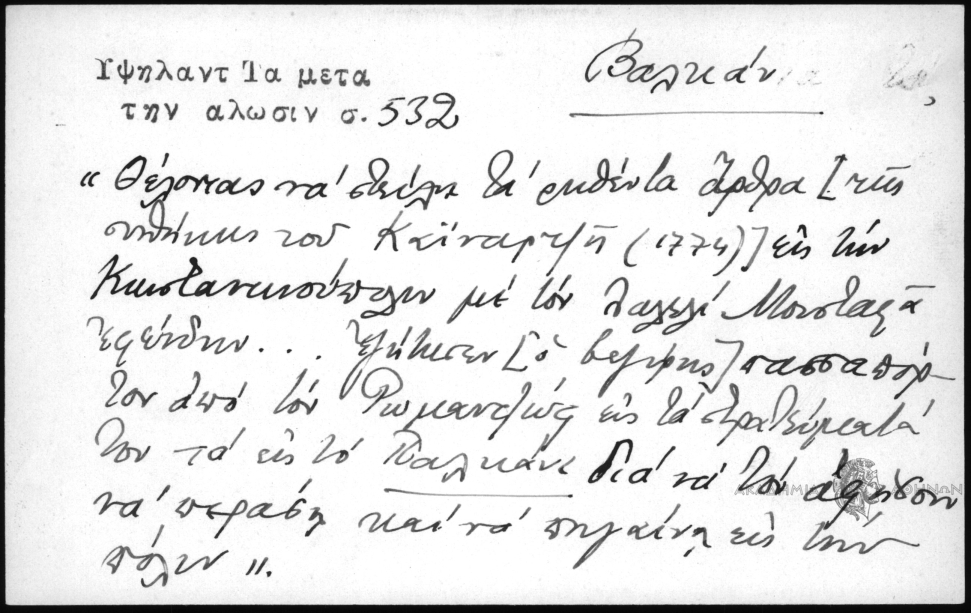 Υψηλαντ Τα μετα
την αλωσιν σ. 532
Βαλκάν
« Θέλοντας νά στείλη τά ρηθέντα ἄρθρα [τῆς
συνθήκης τοῦ Καϊναρτζῆ (1774)] εἰς τήν
Κωνσταντινούπολιν μέ τόν Λαλελί Μουσταφᾶ
Ἐφένδην . . . ἐζήτησεν [ὁ βεζίρης] πασσαπόρ-
τον ἀπό τόν Ρωμαντζώφ εἰς τά στρατεύματά
του τά εἰς τό Παλκάνι διά νά τόν ἀφήσουν
νά περάση καί νά πηγαίνη εἰς τήν
πόλιν ».
ΑΚΑΔΗΜΙΑ ΑΘΗΝΩΝ